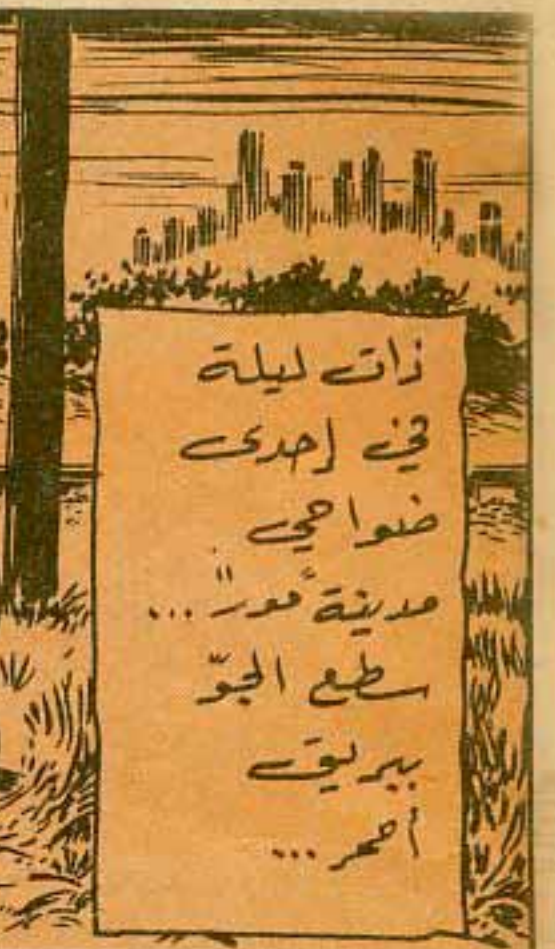 ذات ليلة
في إحدى
ضواحي
مدينة "مور"...
سطع الجوّ
ببريق
أحمر...